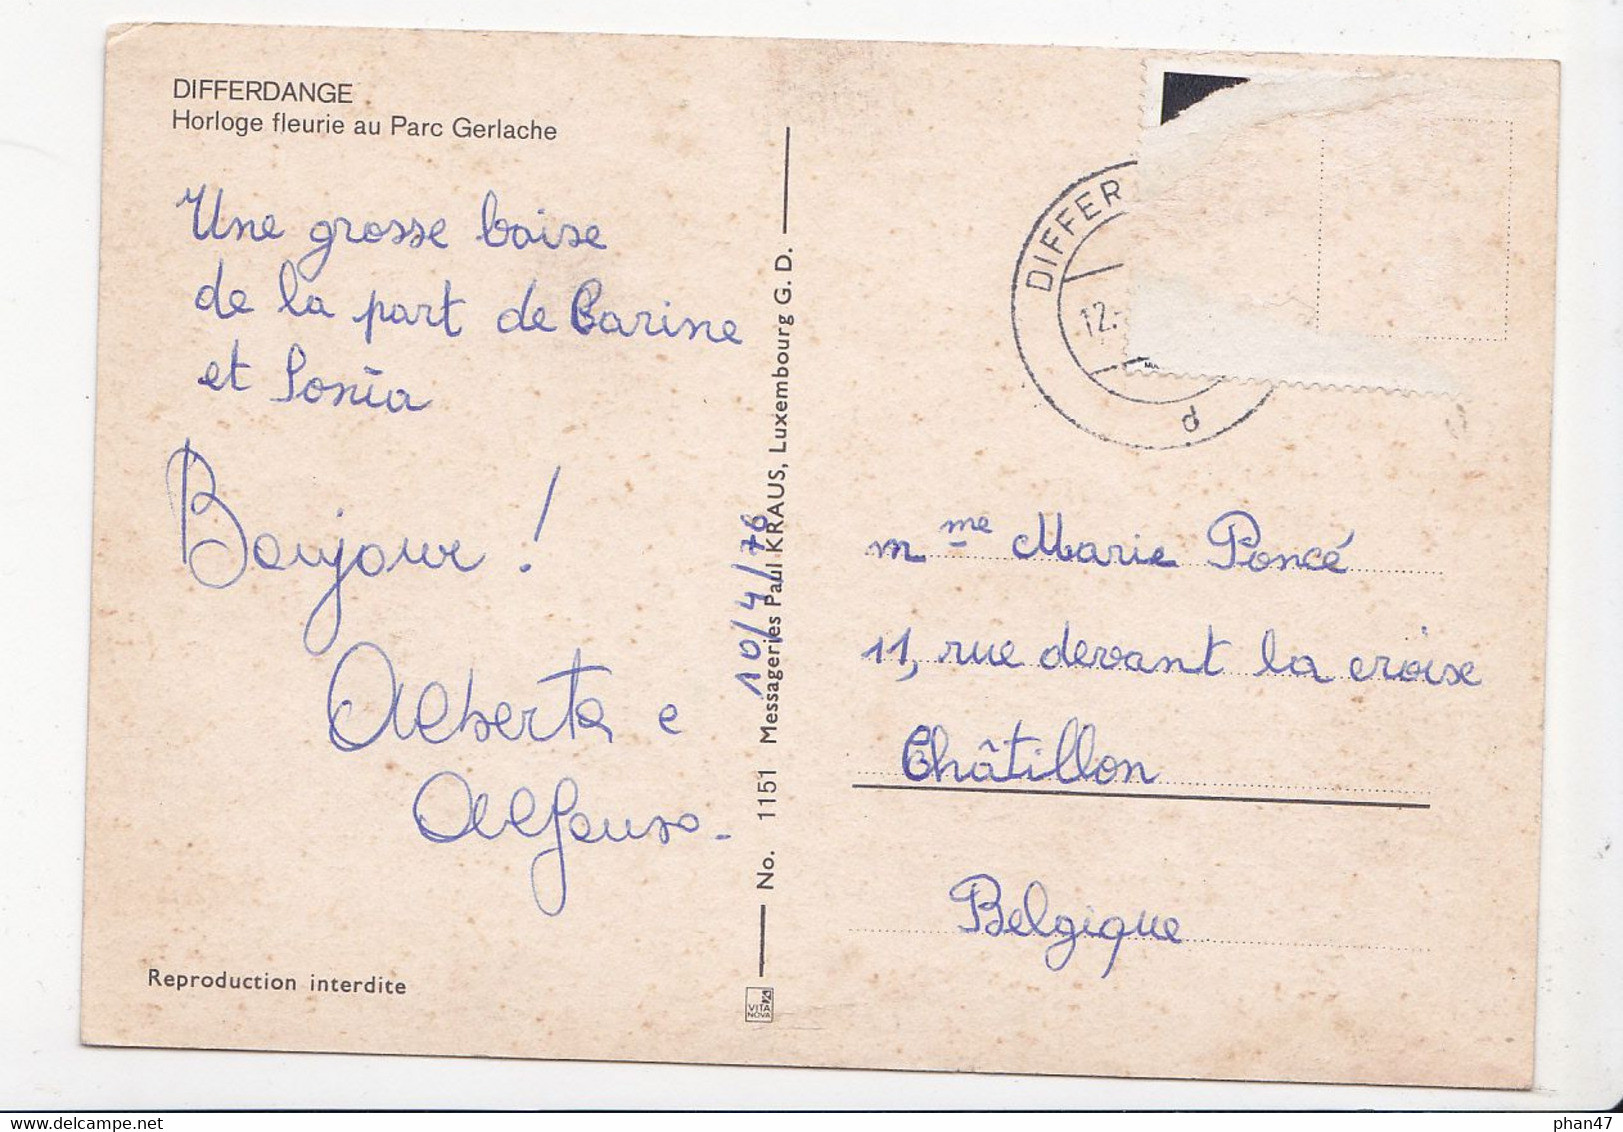 DIFFERDANGE
Horloge fleurie au Parc Gerlache
Une grosse baise
de la part de Carine
et Sonia
Bonjour !
Alberta e
Alfonso-
Reproduction interdite
No. 1151 Messageries Paul KRAUS, Luxembourg G. D.
10/4/76
VITA
NOVA
DIFFER
12.-
d
Mme Marie Poncé
11, rue devant la croix
Châtillon
Belgique
phan47